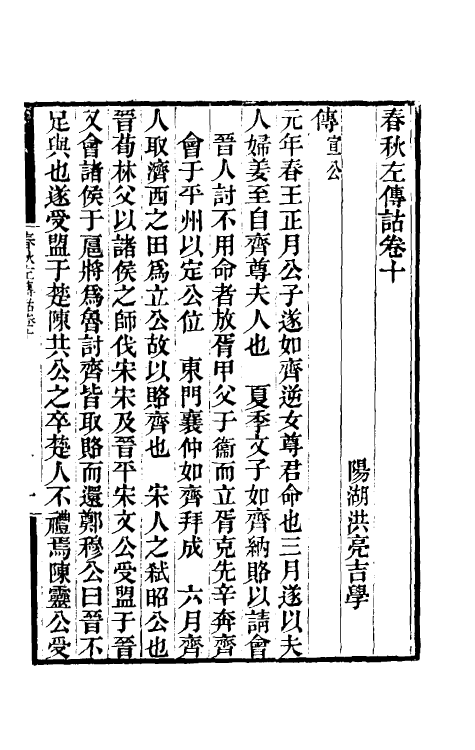 春秋左傳詁卷十
陽湖洪亮吉學
傳宣公
元年春王正月公子遂如齊逆女尊君命也三月遂以夫
人婦姜至自齊尊夫人也　夏季文子如齊納賂以請會
晉人討不用命者放胥甲父于衞而立胥克先辛奔齊
會于平州以定公位　東門襄仲如齊拜成　六月齊
人取濟西之田爲立公故以賂齊也　宋人之弒昭公也
晉荀林父以諸侯之師伐宋宋及晉平宋文公受盟于晉
又會諸侯于扈將爲魯討齊皆取賂而還鄭穆公曰晉不
足與也遂受盟于楚陳共公之卒楚人不禮焉陳靈公受
春秋左傳詁卷十
一